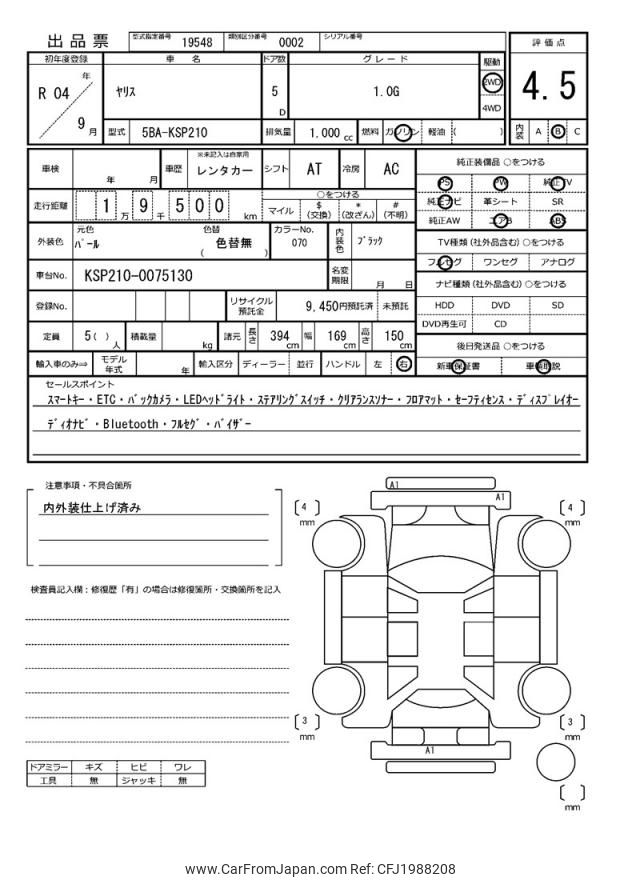 出品票
型式指定番号 19548 類別区分番号 0002 シリアル番号
評価点
初年度登録 車名 ドア数 グレード 駆動
R 04 年 9 月
ヤリス
5 D
1.0G
2WD
4WD
4.5
型式 5BA-KSP210 排気量 1,000 cc 燃料 ガソリン 軽油 ( )
内装 A B C
車検 年 月 車歴 ※未記入は自家用 レンタカー シフト AT 冷房 AC
純正装備品 ○をつける
PS PW 純正TV
走行距離 1 万 9 千 5 0 0 km
○をつける
マイル $ (交換) * (改ざん) # (不明)
純正ナビ 革シート SR
純正AW エアB ABS
外装色 元色 パール 色替 色替無 ( ) カラーNo. 070 内装色 ブラック
TV種類 (社外品含む) ○をつける
フルセグ ワンセグ アナログ
車台No. KSP210-0075130 名変期限 月 日
ナビ種類 (社外品含む) ○をつける
HDD DVD SD
DVD再生可 CD
登録No. リサイクル預託金 9,450円預託済 未預託
定員 5 ( ) 人 積載量 kg 諸元 長さ 394 cm 幅 169 cm 高さ 150 cm
後日発送品 ○をつける
新車保証書 車輌取説
輸入車のみ⇒ モデル年式 年 輸入区分 ディーラー 並行 ハンドル 左 右
セールスポイント
スマートキー・ETC・バックカメラ・LEDヘッドライト・ステアリングスイッチ・クリアランスソナー・フロアマット・セーフティセンス・ディスプレイオー
ディオナビ・Bluetooth・フルセグ・バイザー
注意事項・不具合箇所
内外装仕上げ済み
検査員記入欄：修復歴「有」の場合は修復箇所・交換箇所を記入
A1
A1
4 mm
4 mm
3 mm
3 mm
A1
mm
ドアミラー キズ ヒビ ワレ
工具 無 ジャッキ 無
www.CarFromJapan.com Ref: CFJ1988208